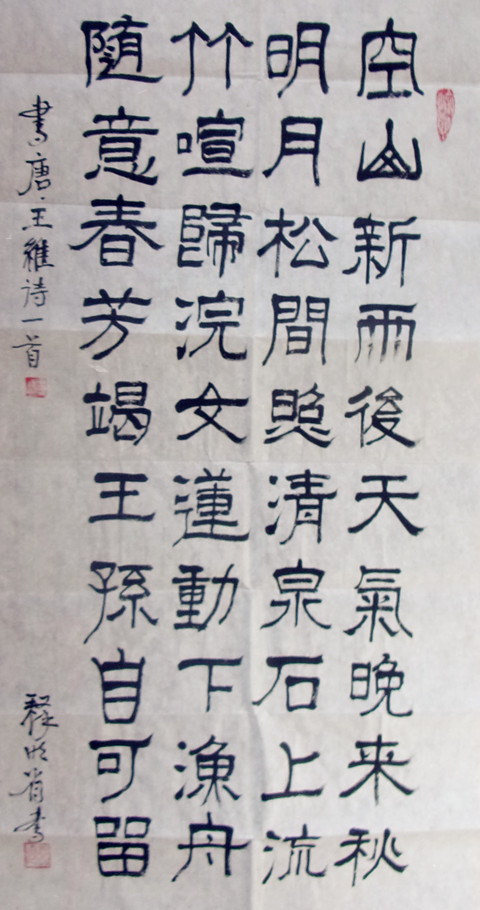 空山新雨後天氣晚来秋
明月松間照清泉石上流
竹喧歸浣女蓮動下漁舟
隨意春芳竭王孫自可留
書唐王維诗一首
釋明省書